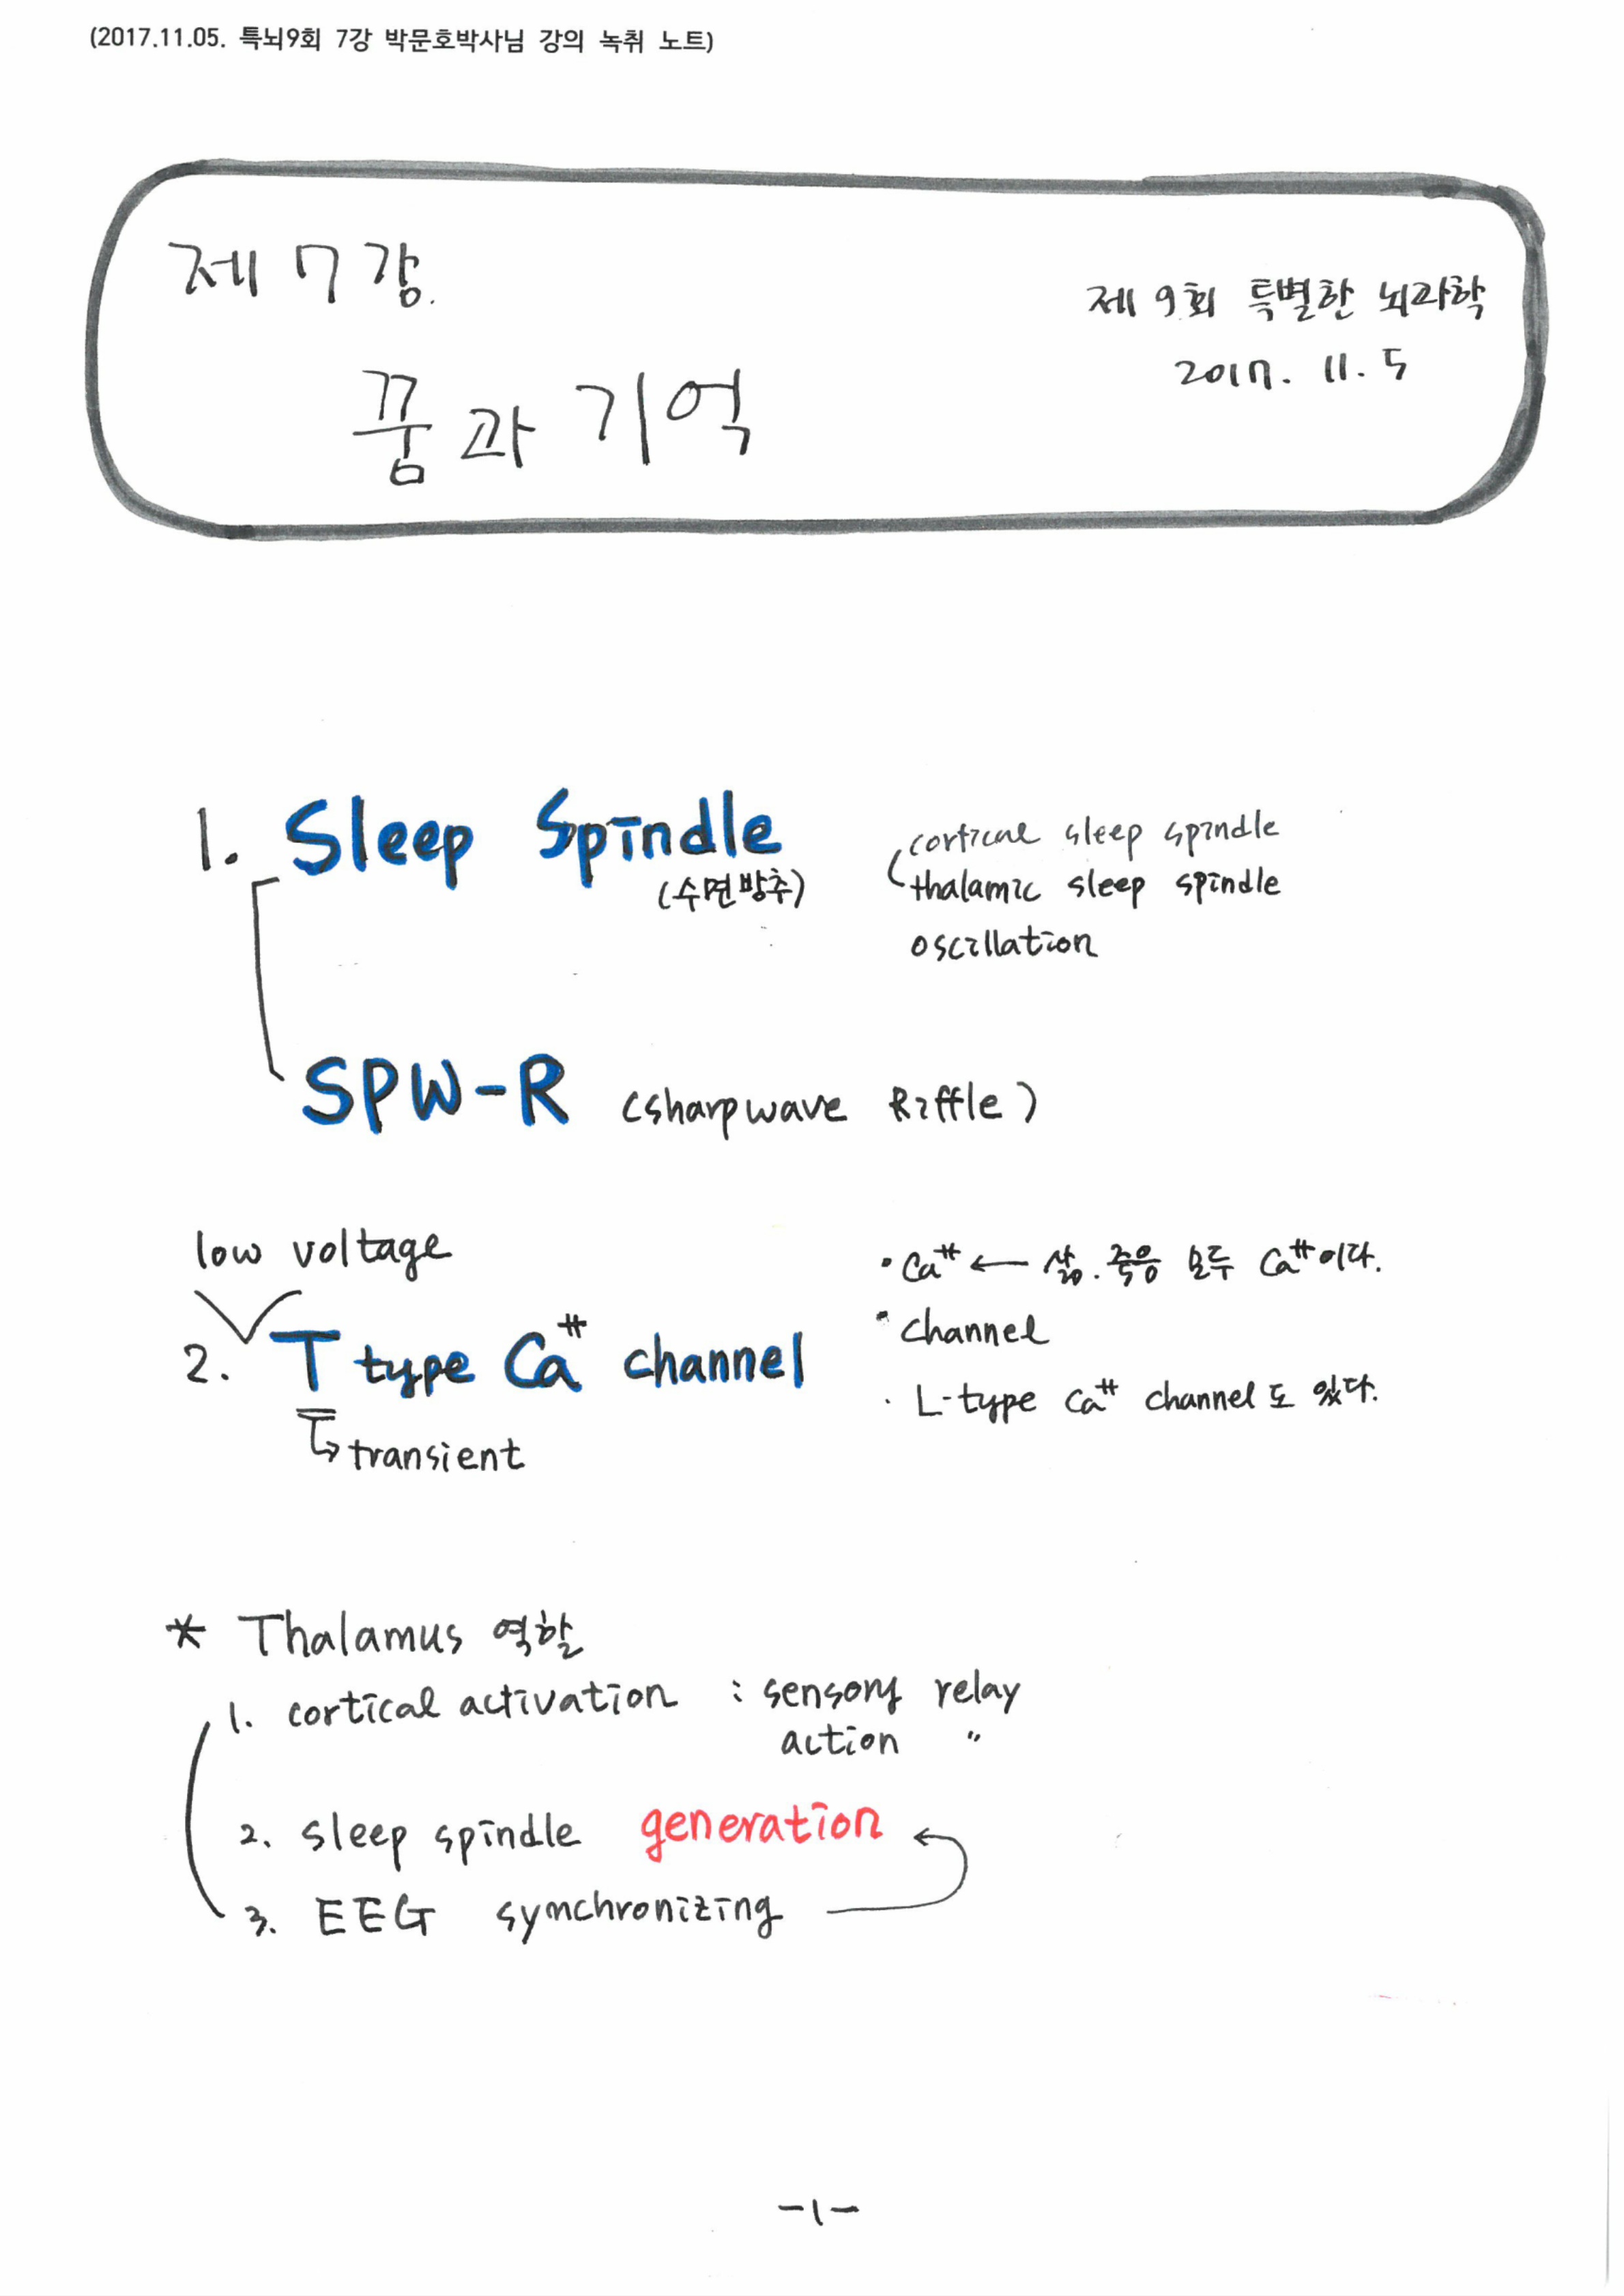 (2017.11.05. 특뇌9회 7강 박문호박사님 강의 녹취 노트)
제 7 강.
제 9회 특별한 뇌과학
2017. 11. 5
꿈과 기억
1. Sleep Spindle
(수면방추)
cortical sleep spindle
thalamic sleep spindle
oscillation
SPW-R (sharpwave Riffle)
low voltage
2. T type Ca⁺⁺ channel
transient
· Ca⁺⁺ ← 삶. 죽음 모두 Ca⁺⁺이다.
· channel
· L-type Ca⁺⁺ channel도 있다.
* Thalamus 역할
1. cortical activation : sensory relay
action "
2. sleep spindle generation
3. EEG synchronizing
-1-